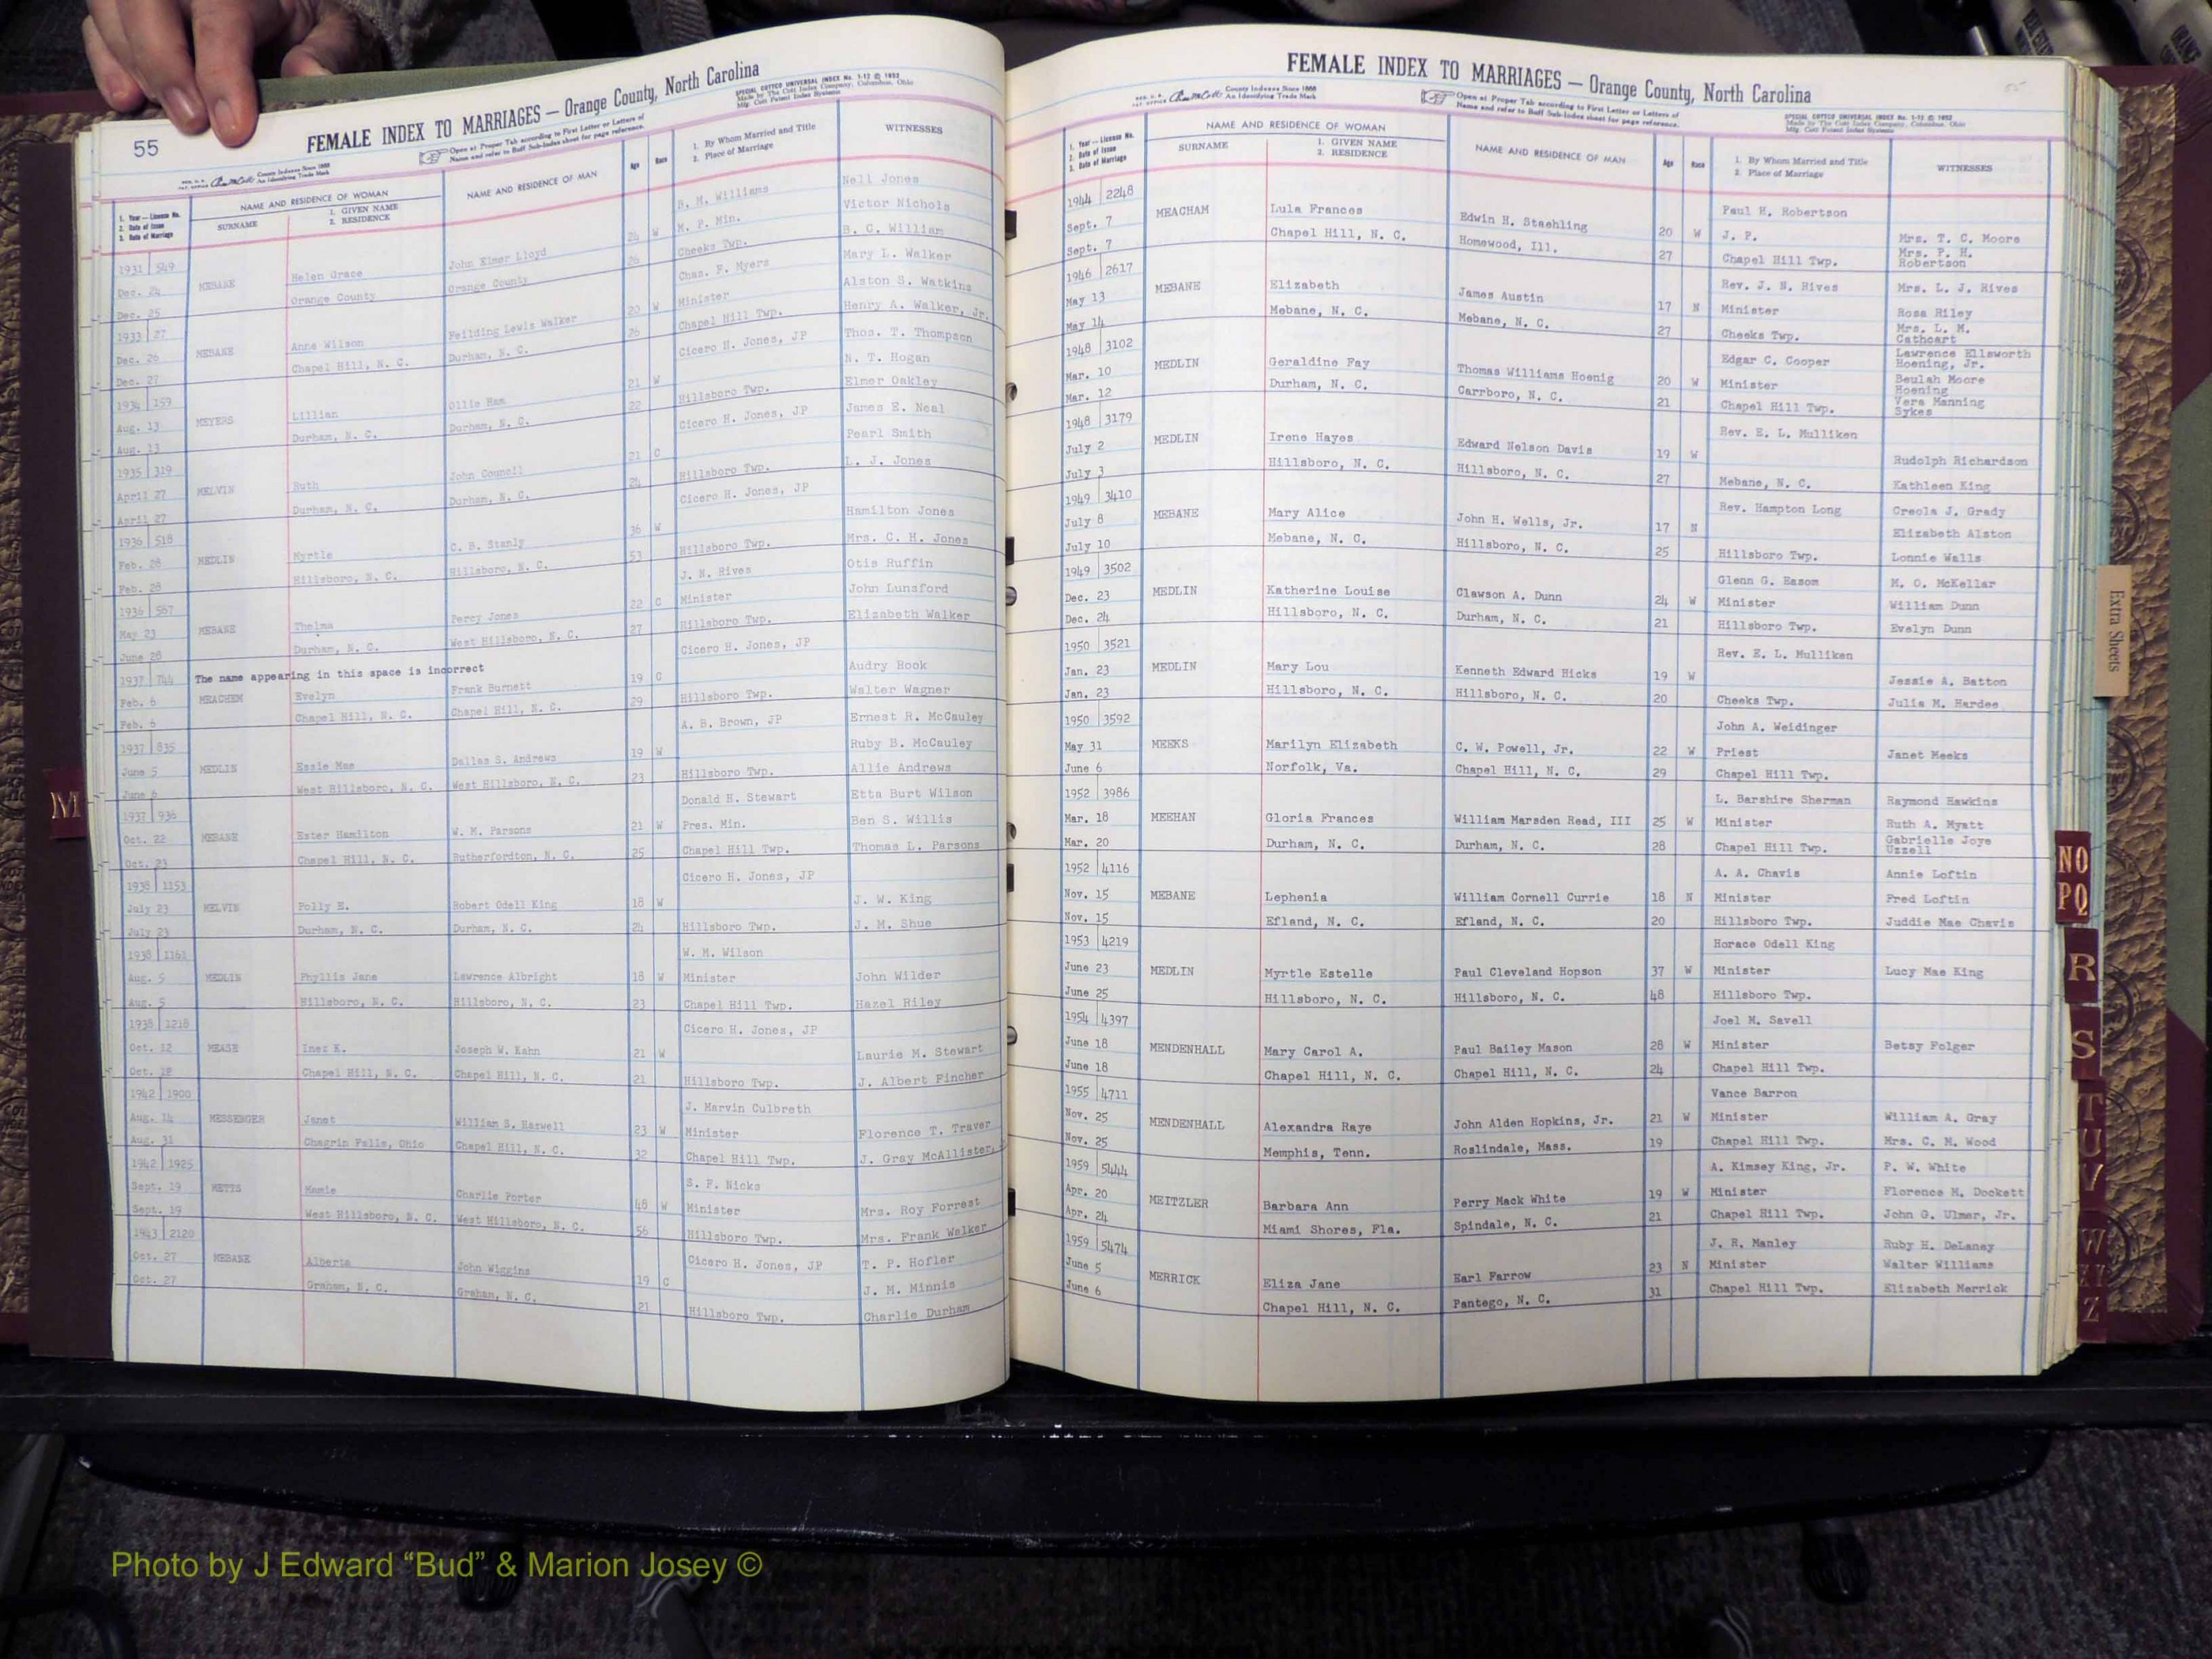 55
FEMALE INDEX TO MARRIAGES — Orange County, North Carolina
Open at Proper Tab according to First Letter or Letters of
Name and refer to Buff Sub-Index sheet for page reference.
SPECIAL COTTCO UNIVERSAL INDEX No. 1-12 © 1952
Made by The Cott Index Company, Columbus, Ohio
Mfg. Cott Patent Index Systems
County Indexes Since 1888
An Identifying Trade Mark
1. Year — License No.
2. Date of Issue
3. Date of Marriage
NAME AND RESIDENCE OF WOMAN
SURNAME
1. GIVEN NAME
2. RESIDENCE
NAME AND RESIDENCE OF MAN
Age
Race
1. By Whom Married and Title
2. Place of Marriage
WITNESSES
1931 549 John Elmer Lloyd 24 W B. M. Williams Nell Jones
Dec. 24 MEBANE Helen Grace M. P. Min. Victor Nichols
Dec. 25 Orange County Orange County 26 Cheeks Twp. B. C. William
1933 27 Feilding Lewis Walker 20 W Chas. F. Myers Mary L. Walker
Dec. 26 MEBANE Anne Wilson Minister Alston S. Watkins
Dec. 27 Chapel Hill, N. C. Durham, N. C. 26 Chapel Hill Twp. Henry A. Walker, Jr.
1934 159 Ollie Ham 21 W Cicero H. Jones, JP Thos. T. Thompson
Aug. 13 MEYERS Lillian N. T. Hogan
Aug. 13 Durham, N. C. Durham, N. C. 22 Hillsboro Twp. Elmer Oakley
1935 319 John Council 21 C Cicero H. Jones, JP James E. Neal
April 27 MELVIN Ruth Pearl Smith
April 27 Durham, N. C. Durham, N. C. 24 Hillsboro Twp. L. J. Jones
1936 518 C. B. Stanly 36 W Cicero H. Jones, JP
Feb. 28 MEDLIN Myrtle Hamilton Jones
Feb. 28 Hillsboro, N. C. Hillsboro, N. C. 53 Hillsboro Twp. Mrs. C. H. Jones
1936 567 Percy Jones 22 C J. N. Rives Otis Ruffin
May 23 MEBANE Thelma Minister John Lunsford
June 28 Durham, N. C. West Hillsboro, N. C. 27 Hillsboro Twp. Elizabeth Walker
1937 744 The name appearing in this space is incorrect
Frank Burnett 19 C Cicero H. Jones, JP
Feb. 6 MEACHEM Evelyn Audry Rook
Feb. 6 Chapel Hill, N. C. Chapel Hill, N. C. 29 Hillsboro Twp. Walter Wagner
1937 835 Dallas S. Andrews 19 W A. B. Brown, JP Ernest R. McCauley
June 5 MEDLIN Essie Mae Ruby B. McCauley
June 6 West Hillsboro, N. C. West Hillsboro, N. C. 23 Hillsboro Twp. Allie Andrews
1937 936 Donald H. Stewart Etta Burt Wilson
Oct. 22 MEBANE Ester Hamilton W. M. Parsons 21 W Pres. Min. Ben S. Willis
Oct. 23 Chapel Hill, N. C. Rutherfordton, N. C. 25 Chapel Hill Twp. Thomas L. Parsons
1938 1153 Cicero H. Jones, JP
July 23 MELVIN Polly E. Robert Odell King 18 W J. W. King
July 23 Durham, N. C. Durham, N. C. 24 Hillsboro Twp. J. M. Shue
1938 1161 W. M. Wilson
Aug. 5 MEDLIN Phyllis Jane Lawrence Albright 18 W Minister John Wilder
Aug. 5 Hillsboro, N. C. Hillsboro, N. C. 23 Chapel Hill Twp. Hazel Riley
1938 1218 Cicero H. Jones, JP
Oct. 12 MEASE Inez K. Joseph W. Kahn 21 W Laurie M. Stewart
Oct. 12 Chapel Hill, N. C. Chapel Hill, N. C. 21 Hillsboro Twp. J. Albert Fincher
1942 1900 J. Marvin Culbreth
Aug. 14 MESSENGER Janet William S. Haswell 23 W Minister Florence T. Traver
Aug. 31 Chagrin Falls, Ohio Chapel Hill, N. C. 32 Chapel Hill Twp. J. Gray McAllister,
1942 1925 S. F. Nicks
Sept. 19 METTS Mamie Charlie Porter 48 W Minister Mrs. Roy Forrest
Sept. 19 West Hillsboro, N. C. West Hillsboro, N. C. 56 Hillsboro Twp. Mrs. Frank Walker
1943 2120 Cicero H. Jones, JP T. P. Hofler
Oct. 27 MEBANE Alberta John Wiggins 19 C J. M. Minnis
Oct. 27 Graham, N. C. Graham, N. C. 21 Hillsboro Twp. Charlie Durham
M
55
FEMALE INDEX TO MARRIAGES — Orange County, North Carolina
County Indexes Since 1888
An Identifying Trade Mark
Open at Proper Tab according to First Letter or Letters of
Name and refer to Buff Sub-Index sheet for page reference.
SPECIAL COTTCO UNIVERSAL INDEX No. 1-12 © 1952
Made by The Cott Index Company, Columbus, Ohio
Mfg. Cott Patent Index Systems
1. Year — License No.
2. Date of Issue
3. Date of Marriage
NAME AND RESIDENCE OF WOMAN
SURNAME
1. GIVEN NAME
2. RESIDENCE
NAME AND RESIDENCE OF MAN
Age
Race
1. By Whom Married and Title
2. Place of Marriage
WITNESSES
1944 2248 Paul H. Robertson
Sept. 7 MEACHAM Lula Frances Edwin H. Staehling 20 W J. P. Mrs. T. C. Moore
Sept. 7 Chapel Hill, N. C. Homewood, Ill. 27 Chapel Hill Twp. Mrs. P. H. Robertson
1946 2617 Rev. J. N. Rives Mrs. L. J. Rives
May 13 MEBANE Elizabeth James Austin 17 N Minister Rosa Riley
May 14 Mebane, N. C. Mebane, N. C. 27 Cheeks Twp. Mrs. L. M. Cathcart
1948 3102 Edgar C. Cooper Lawrence Ellsworth Hoening, Jr.
Mar. 10 MEDLIN Geraldine Fay Thomas Williams Hoenig 20 W Minister Beulah Moore Hoening
Mar. 12 Durham, N. C. Carrboro, N. C. 21 Chapel Hill Twp. Vera Manning Sykes
1948 3179 Rev. E. L. Mulliken
July 2 MEDLIN Irene Hayes Edward Nelson Davis 19 W Rudolph Richardson
July 3 Hillsboro, N. C. Hillsboro, N. C. 27 Mebane, N. C. Kathleen King
1949 3410 Rev. Hampton Long Creola J. Grady
July 8 MEBANE Mary Alice John H. Wells, Jr. 17 N Elizabeth Alston
July 10 Mebane, N. C. Hillsboro, N. C. 25 Hillsboro Twp. Lonnie Walls
1949 3502 Glenn G. Eason M. O. McKellar
Dec. 23 MEDLIN Katherine Louise Clawson A. Dunn 24 W Minister William Dunn
Dec. 24 Hillsboro, N. C. Durham, N. C. 21 Hillsboro Twp. Evelyn Dunn
1950 3521 Rev. E. L. Mulliken
Jan. 23 MEDLIN Mary Lou Kenneth Edward Hicks 19 W Jessie A. Batton
Jan. 23 Hillsboro, N. C. Hillsboro, N. C. 20 Cheeks Twp. Julia M. Hardee
1950 3592 John A. Weidinger
May 31 MEEKS Marilyn Elizabeth C. W. Powell, Jr. 22 W Priest Janet Meeks
June 6 Norfolk, Va. Chapel Hill, N. C. 29 Chapel Hill Twp.
1952 3986 L. Barshire Sherman Raymond Hawkins
Mar. 18 MEEHAN Gloria Frances William Marsden Read, III 25 W Minister Ruth A. Myatt
Mar. 20 Durham, N. C. Durham, N. C. 28 Chapel Hill Twp. Gabrielle Joye Uzzell
1952 4116 A. A. Chavis Annie Loftin
Nov. 15 MEBANE Lephenia William Cornell Currie 18 N Minister Fred Loftin
Nov. 15 Efland, N. C. Efland, N. C. 20 Hillsboro Twp. Juddie Mae Chavis
1953 4219 Horace Odell King
June 23 MEDLIN Myrtle Estelle Paul Cleveland Hopson 37 W Minister Lucy Mae King
June 25 Hillsboro, N. C. Hillsboro, N. C. 48 Hillsboro Twp.
1954 4397 Joel M. Savell
June 18 MENDENHALL Mary Carol A. Paul Bailey Mason 28 W Minister Betsy Folger
June 18 Chapel Hill, N. C. Chapel Hill, N. C. 24 Chapel Hill Twp.
1955 4711 Vance Barron
Nov. 25 MENDENHALL Alexandra Raye John Alden Hopkins, Jr. 21 W Minister William A. Gray
Nov. 25 Memphis, Tenn. Roslindale, Mass. 19 Chapel Hill Twp. Mrs. C. M. Wood
1959 5444 A. Kimsey King, Jr. P. W. White
Apr. 20 MEITZLER Barbara Ann Perry Mack White 19 W Minister Florence M. Dockett
Apr. 24 Miami Shores, Fla. Spindale, N. C. 21 Chapel Hill Twp. John G. Ulmer, Jr.
1959 5474 J. R. Manley Ruby H. DeLaney
June 5 MERRICK Eliza Jane Earl Farrow 23 N Minister Walter Williams
June 6 Chapel Hill, N. C. Pantego, N. C. 31 Chapel Hill Twp. Elizabeth Merrick
Extra Sheets
NO
PQ
R
S
T
U
V
W
Z
Photo by J Edward “Bud” & Marion Josey ©